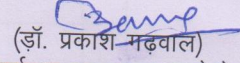 (ड़ॉ. प्रकाश गढ़वाल)